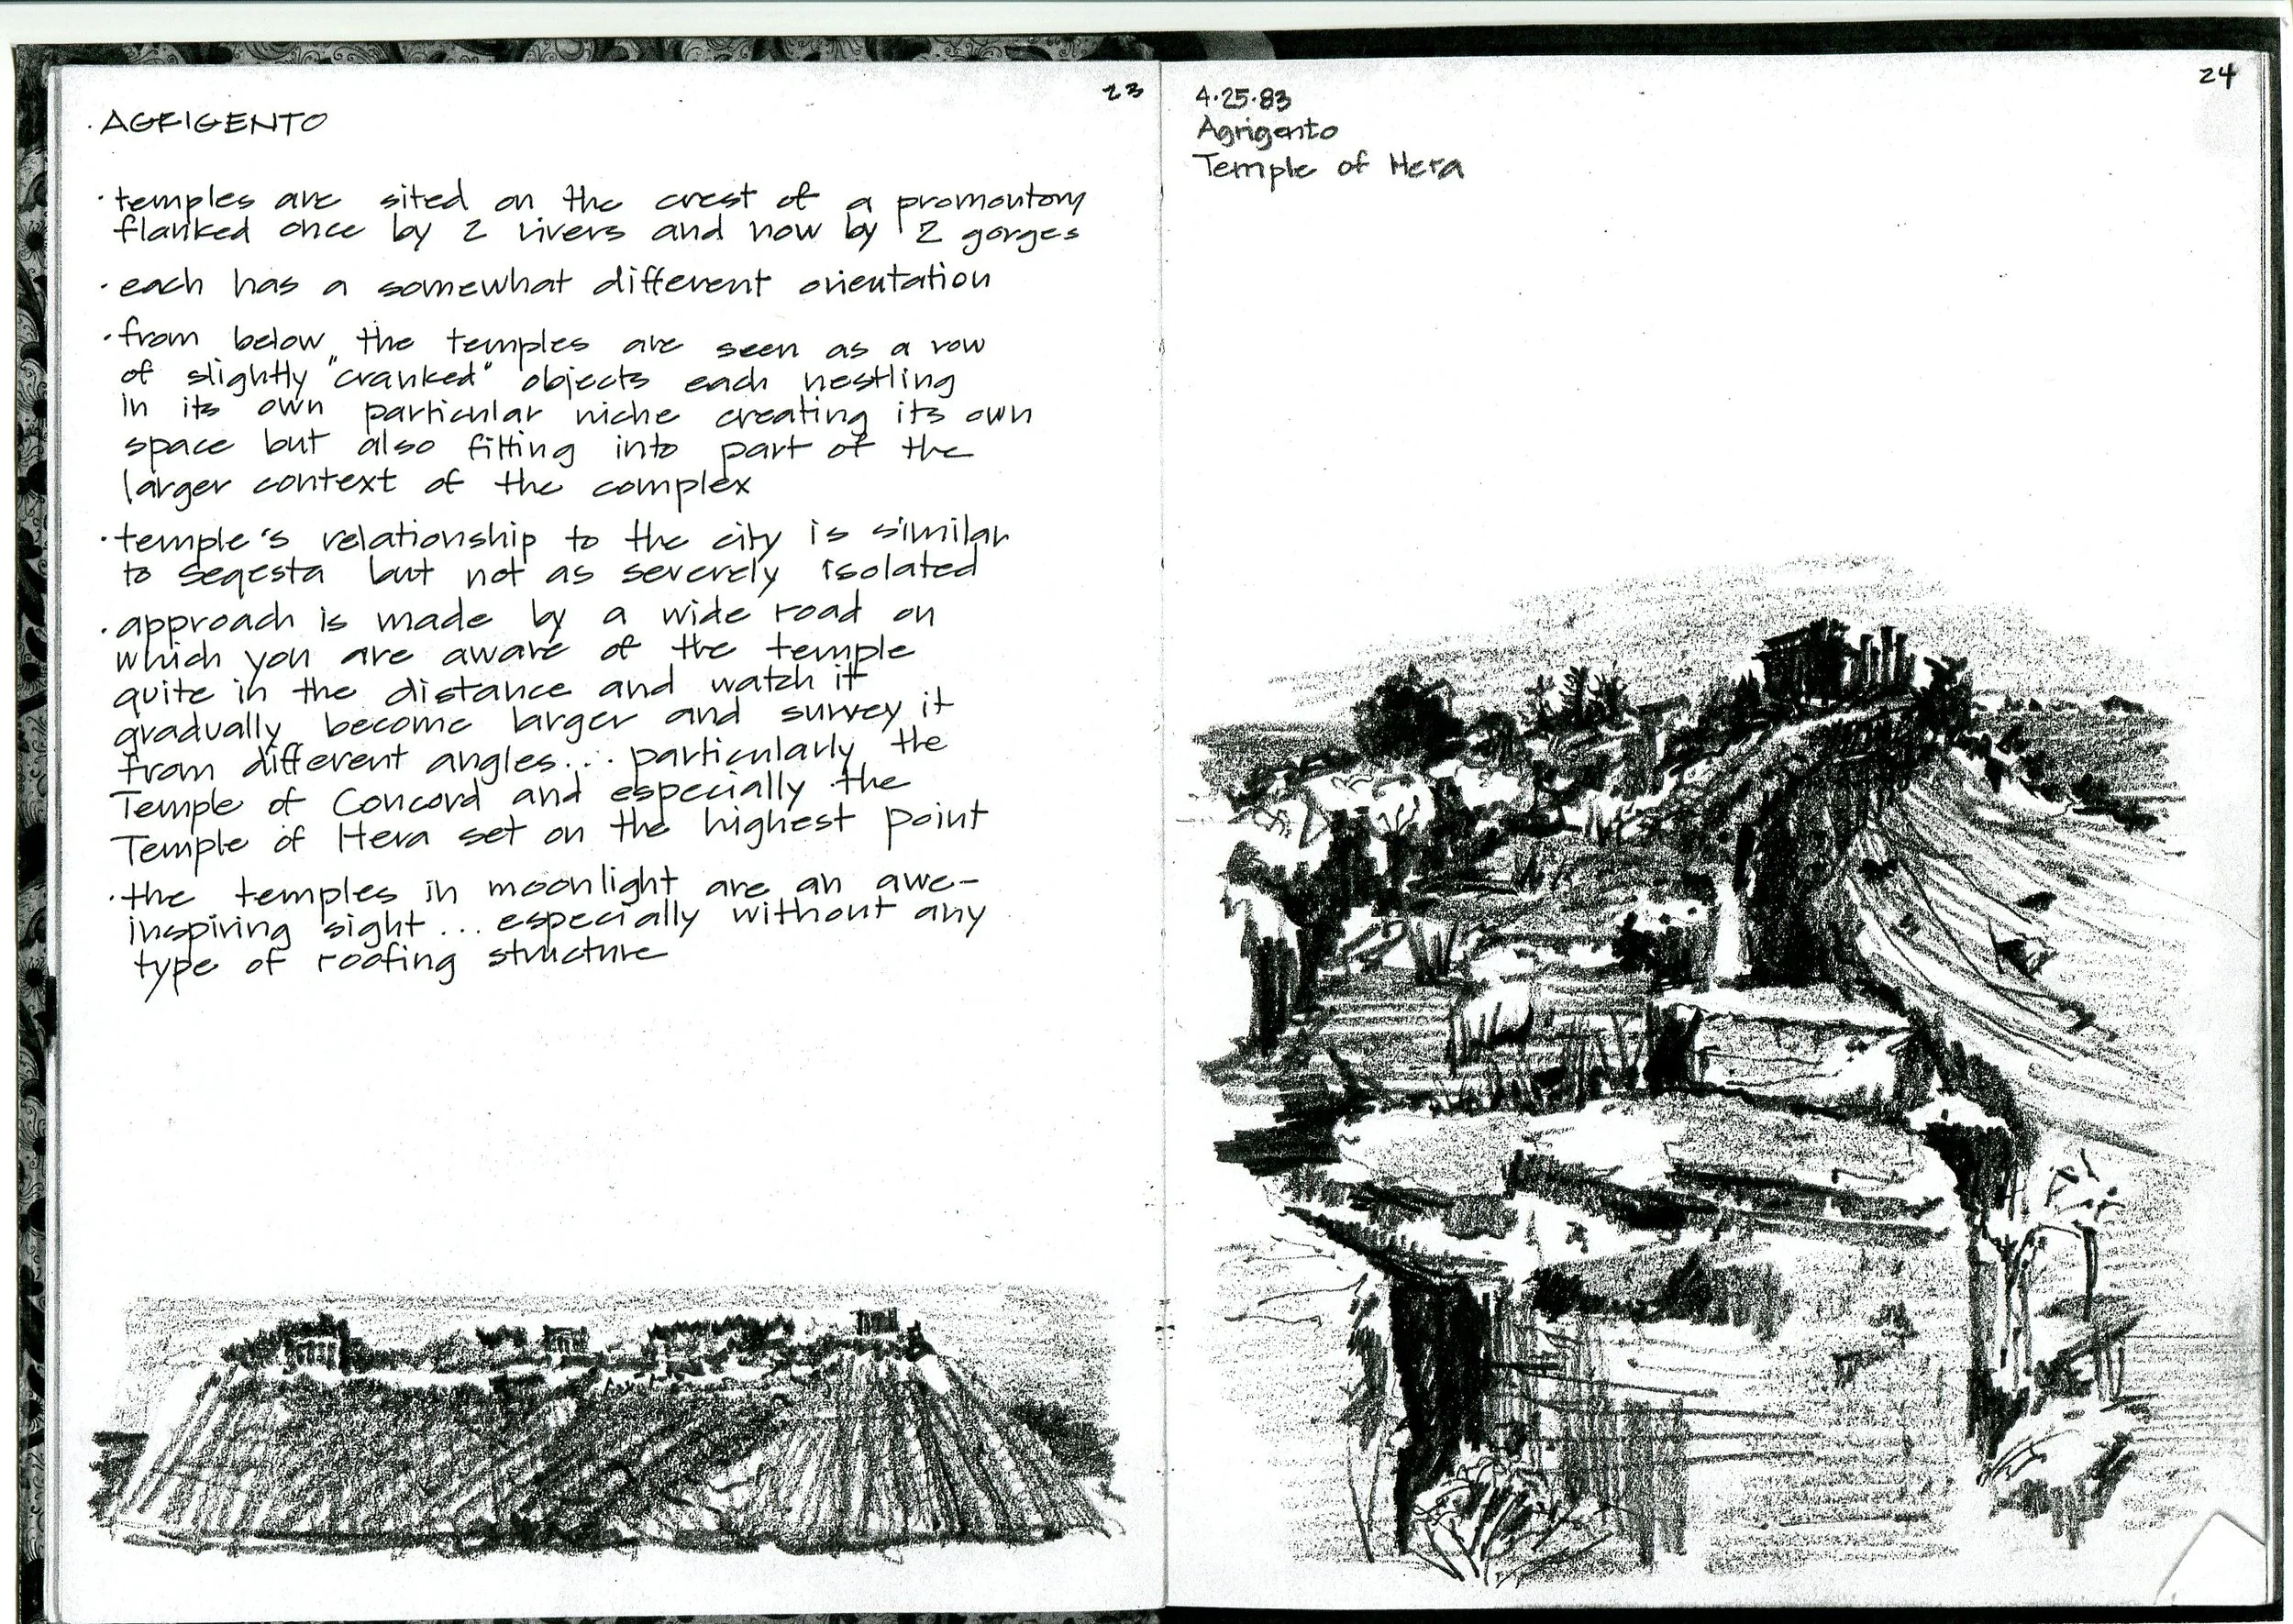 23
· AGRIGENTO
· temples are sited on the crest of a promontory
flanked once by 2 rivers and now by 2 gorges
· each has a somewhat different orientation
· from below the temples are seen as a row
of slightly "cranked" objects each nestling
in its own particular niche creating its own
space but also fitting into part of the
larger context of the complex
· temple's relationship to the city is similar
to Segesta but not as severely isolated
· approach is made by a wide road on
which you are aware of the temple
quite in the distance and watch it
gradually become larger and survey it
from different angles... particularly the
Temple of Concord and especially the
Temple of Hera set on the highest point
· the temples in moonlight are an awe-
inspiring sight... especially without any
type of roofing structure
24
4·25·83
Agrigento
Temple of Hera